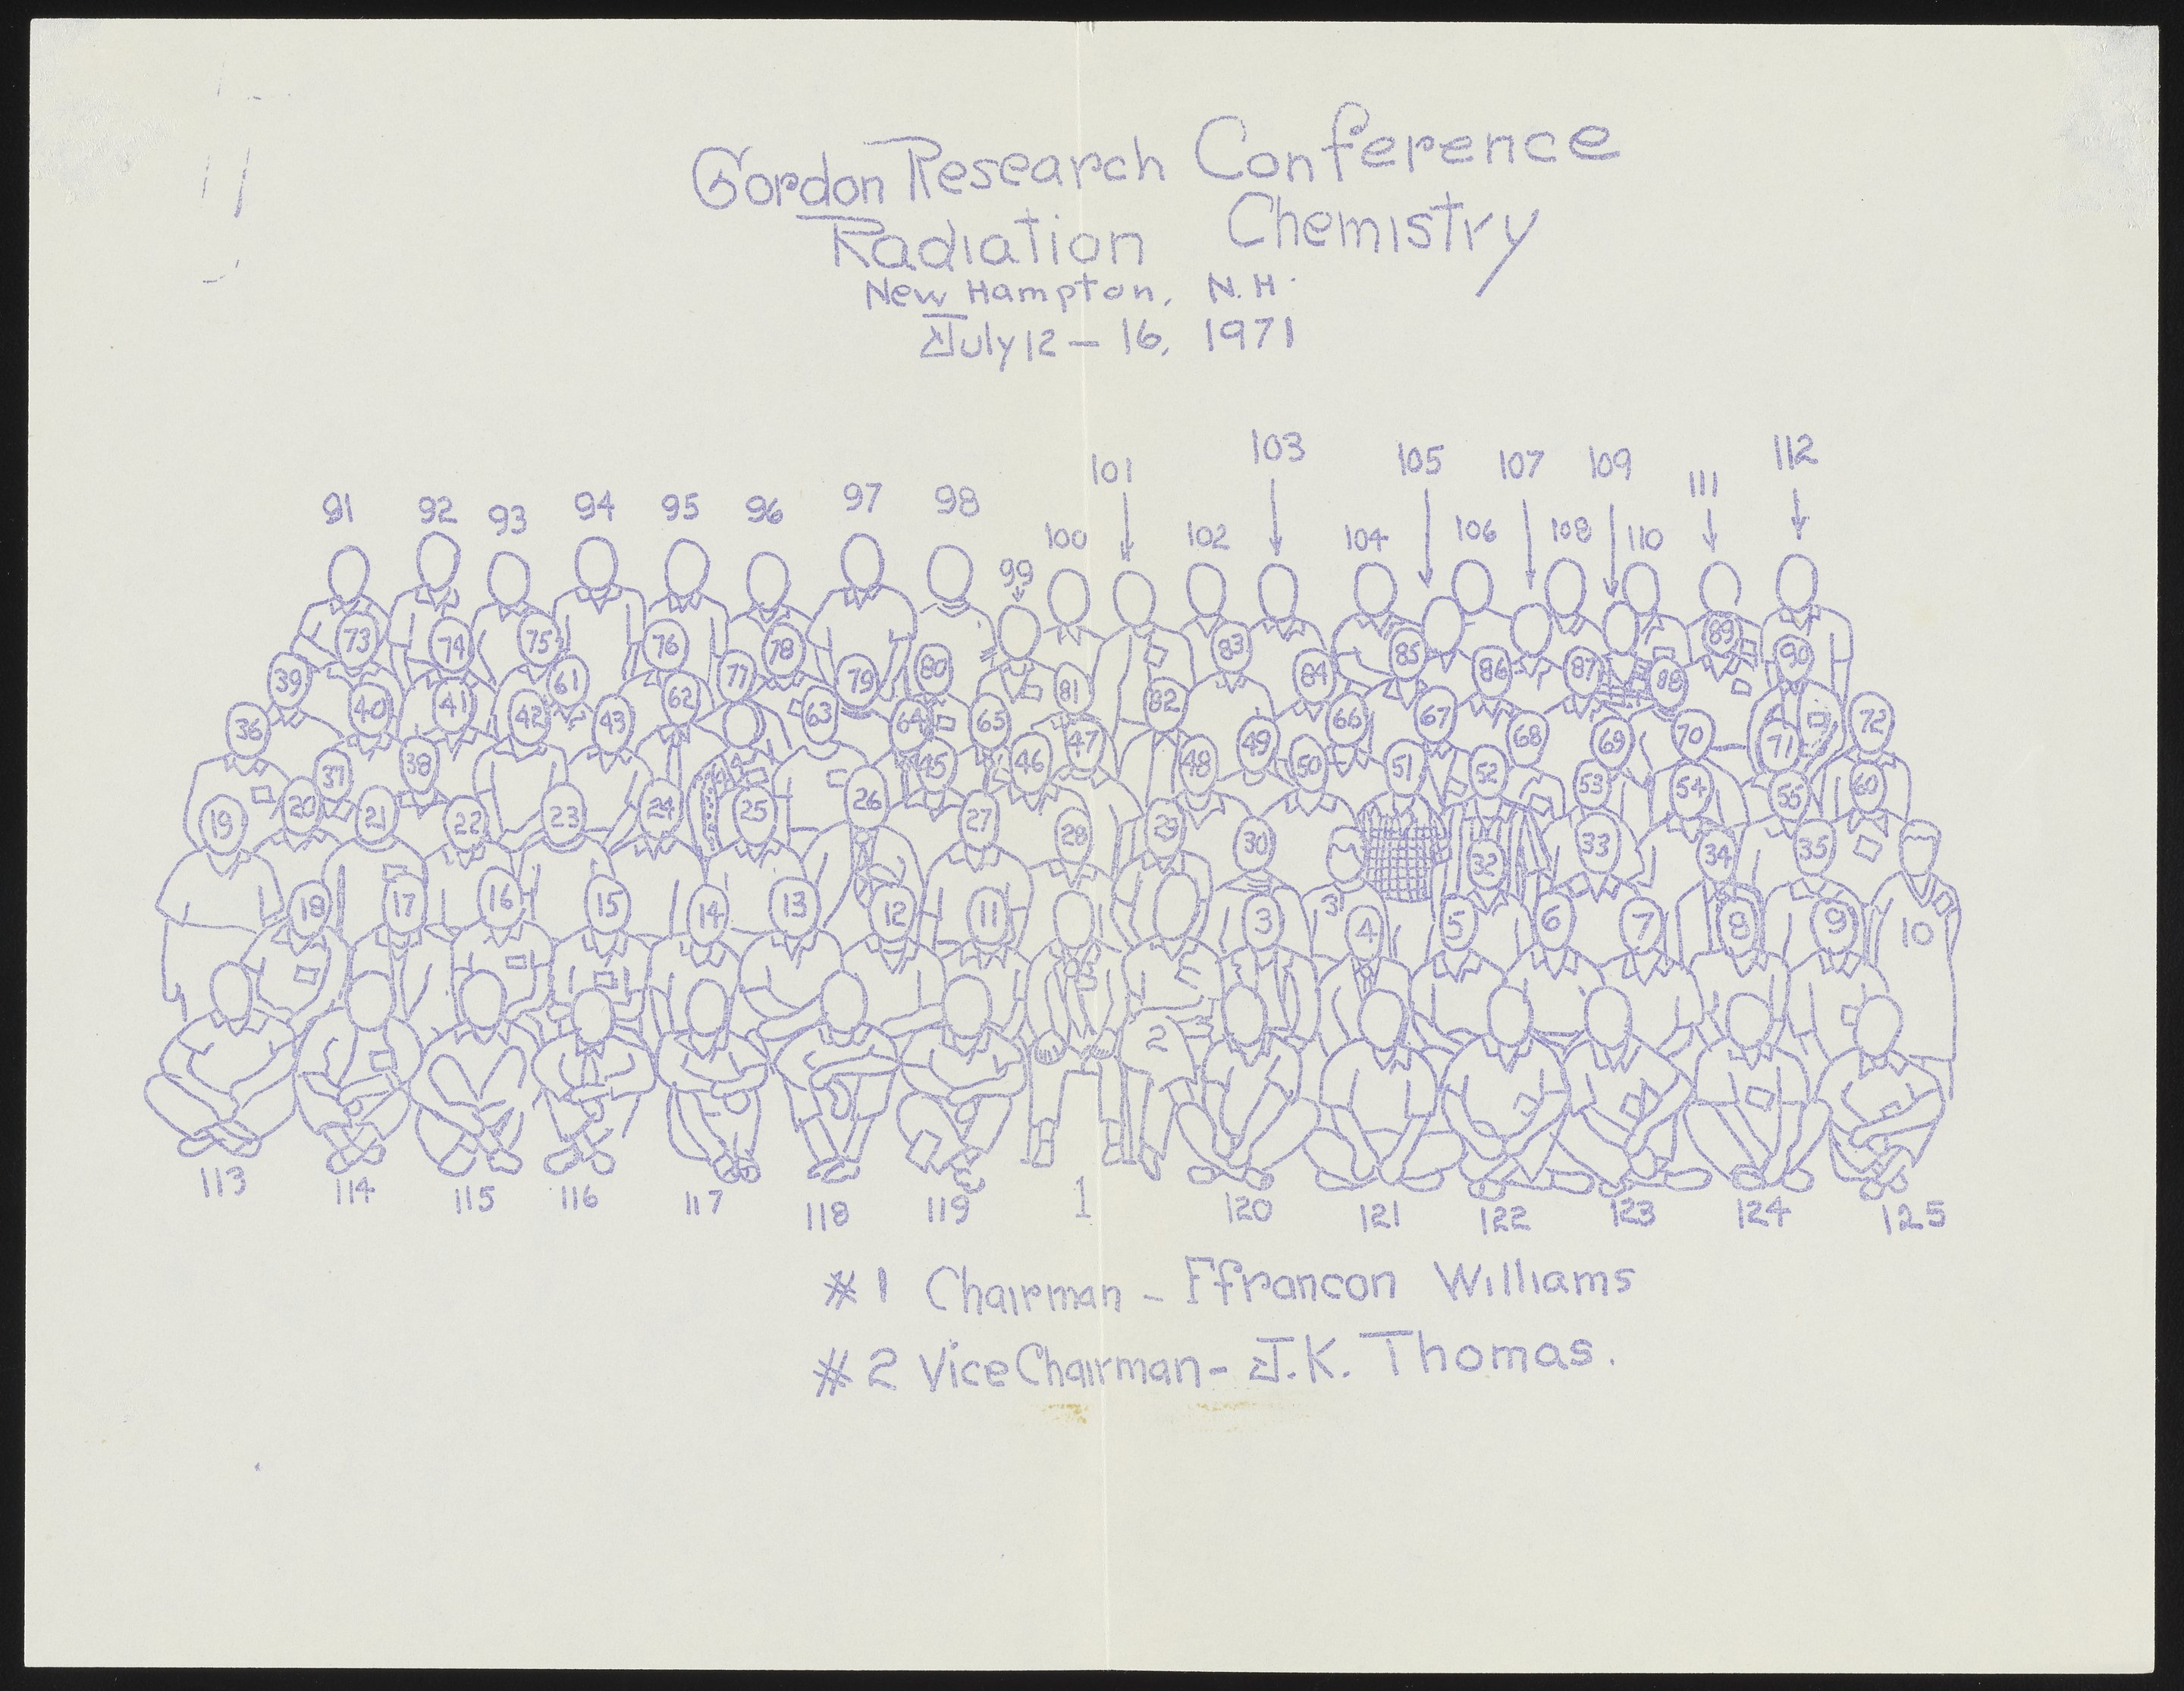 Gordon Research Conference
Radiation Chemistry
New Hampton, N.H.
July 12 – 16, 1971
103
101 105 107 109 111 112
91 92 93 94 95 96 97 98
99 100 102 104 106 108 110
73 74 75 76 77 78 79 80 81 82 83 84 85 86 87 88 89 90
39 40 41 42 61 43 62 63 64 65 66 67 68 69 70 71 72
36 37 38 44 45 46 47 48 49 50 51 52 53 54 55 60
19 20 21 22 23 24 25 26 27 28 29 30 31 32 33 34 35
18 17 16 15 14 13 12 11 3 4 5 6 7 8 9 10
2
113 114 115 116 117 118 119 1 120 121 122 123 124 125
#1 Chairman – Ffrancon Williams
#2 Vice Chairman – J.K. Thomas.